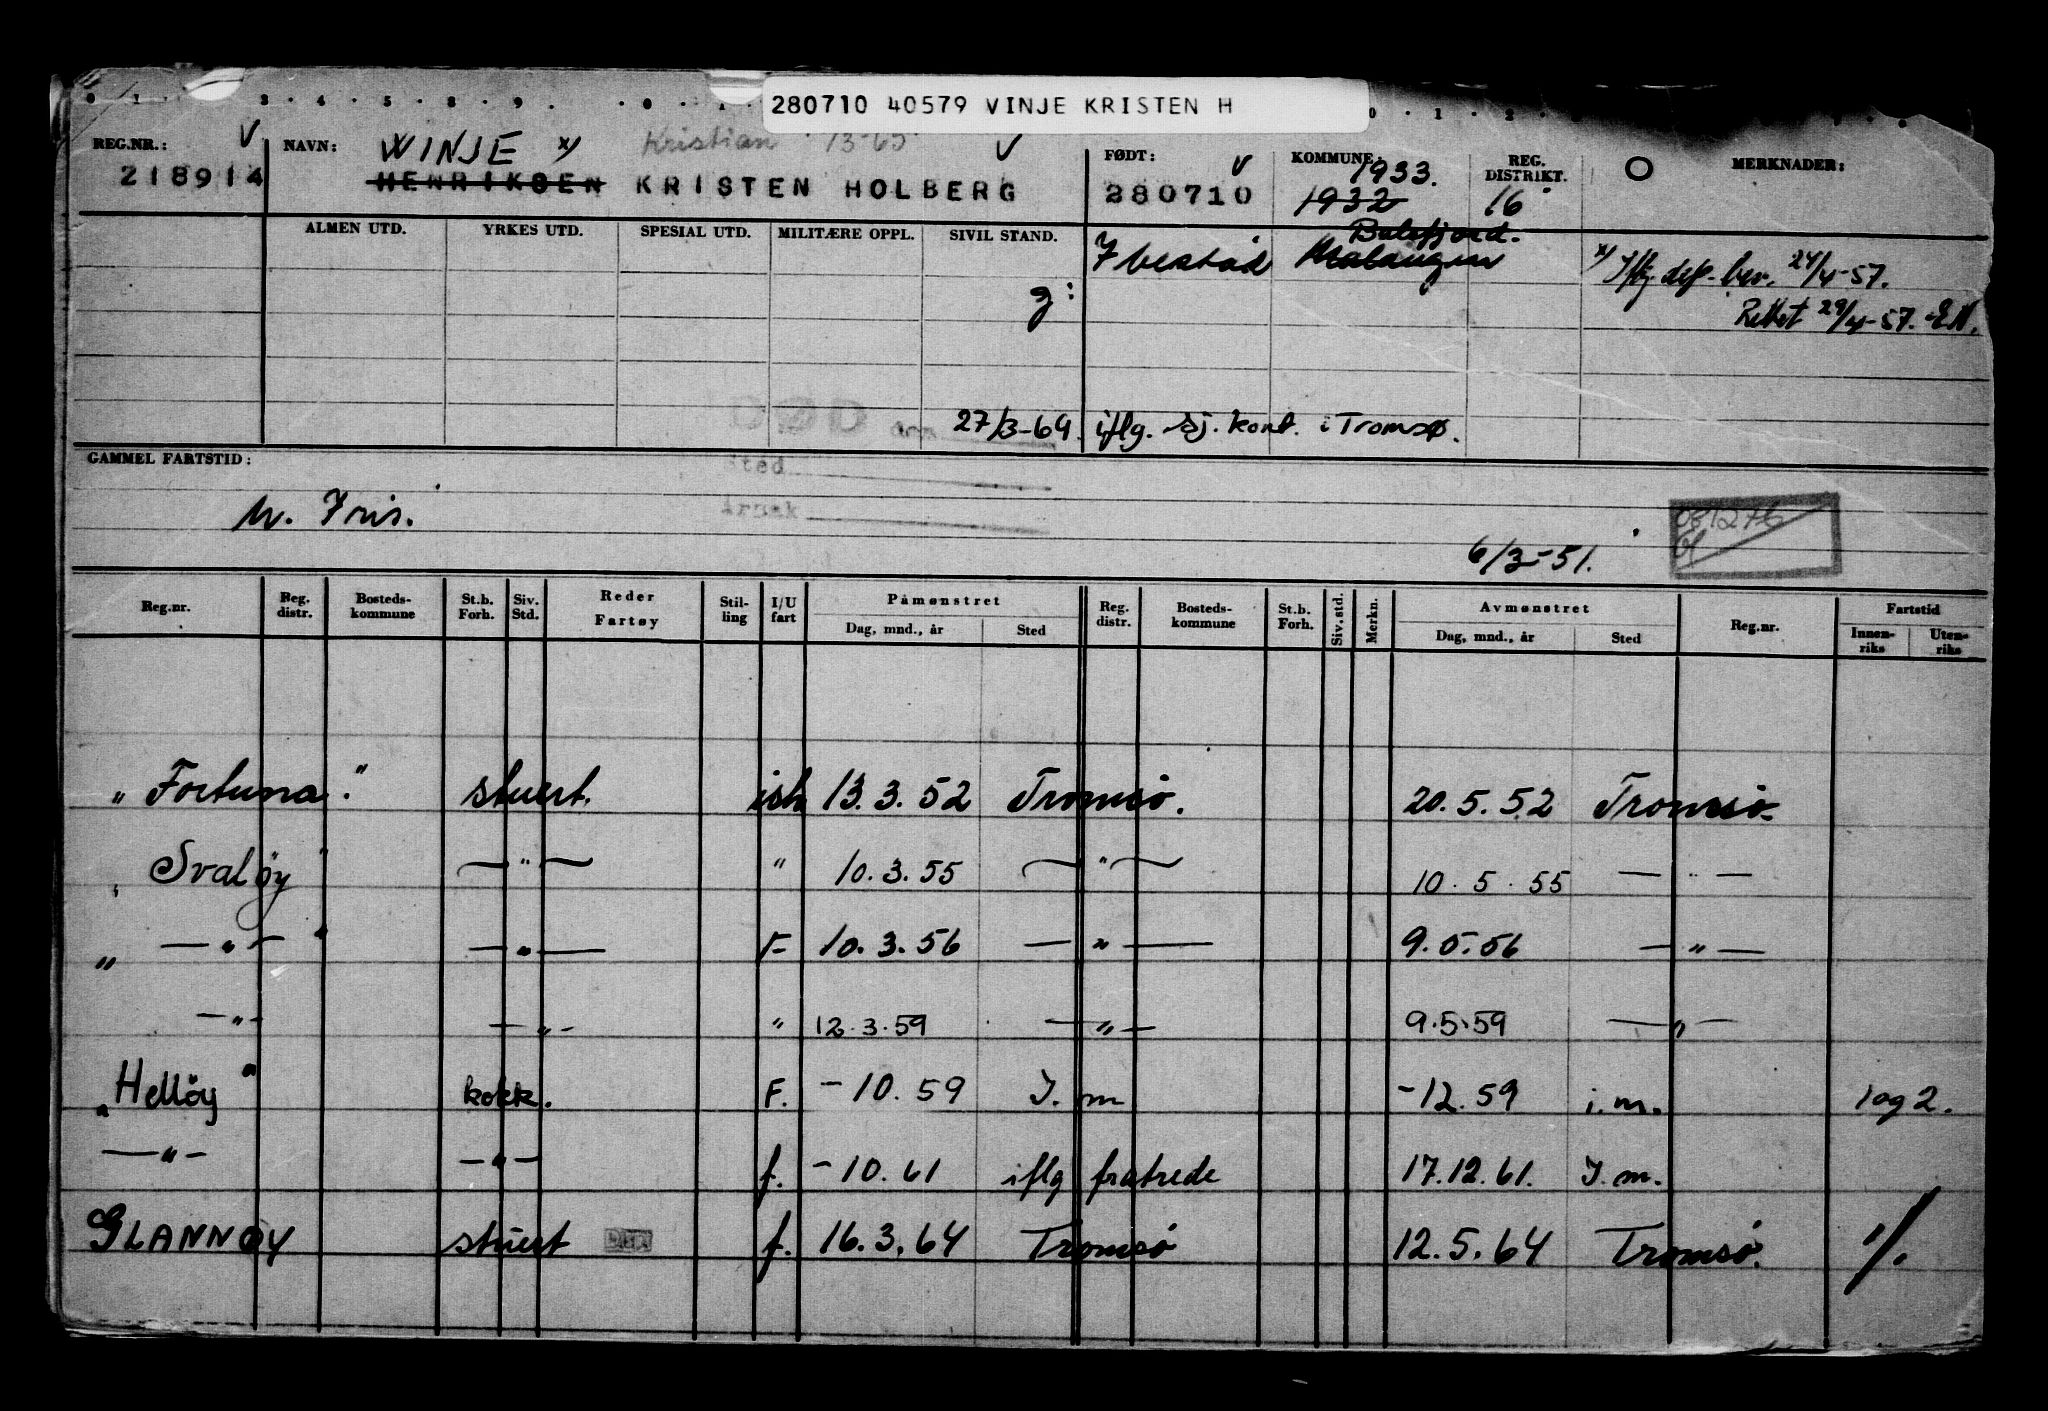 280710 40579 VINJE KRISTEN H
REG.NR.: V NAVN: WINJE x/ Kristian 13-65 V FØDT: V KOMMUNE: 1933. REG. DISTRIKT. O MERKNADER:
218914 HENRIKSEN KRISTEN HOLBERG 280710 1932 16
ALMEN UTD. YRKES UTD. SPESIAL UTD. MILITÆRE OPPL. SIVIL STAND. Balsfjord.
Ibestad Malangen x/ Iflg. dep. bev. 24/4-57.
g: Rettet 29/4-57.
DØD 27/3-69. iflg. sj. kont. i Tromsø.
GAMMEL FARTSTID: Sted
Årsak
081276
6/3-51.
Reg.nr. Reg. distr. Bosteds-kommune St.b. Forh. Siv. Std. Reder Fartøy Stil-ling I/U fart Påmønstret Dag, mnd., år Sted Reg. distr. Bosteds-kommune St.b. Forh. Siv. std. Merkn. Avmønstret Dag, mnd., år Sted Reg.nr. Fartstid Innen-riks Uten-riks
"Fortuna." stuert. ish 13.3.52 Tromsø. 20.5.52 Tromsø-
"Svaløy" —"— " 10.3.55 —"— 10.5.55 —"—
"—"—" —"— F 10.3.56 —"— 9.5.56 —"—
—"— —"— " 12.3.59 —"— 9.5.59 —"—
"Helløy" kokk. F. -10.59 I.m -12.59 i.m. 1 og 2.
—"— —"— f. -10.61 iflg fratrede 17.12.61. I.m.
GLANNØY stuert f. 16.3.64 Tromsø 12.5.64 Tromsø. 1/.